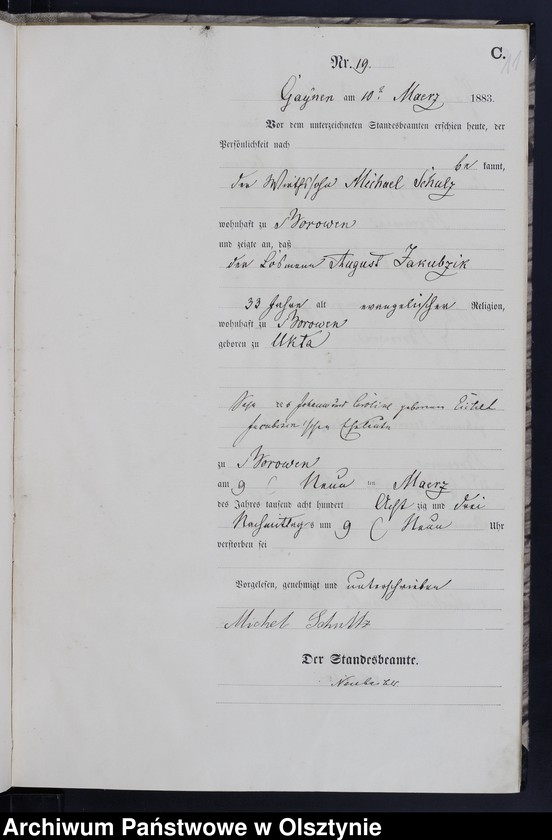 C.
Nr. 19.
Gaÿnen am 10ᵗ Maerz 1883.
Vor dem unterzeichneten Standesbeamten erschien heute, der
Persönlichkeit nach
be kannt,
der Wirthssohn Michael Schulz
wohnhaft zu Borowen
und zeigte an, daß
der Losmann August Jakubzik
33 Jahre alt evangelischer Religion,
wohnhaft zu Borowen
geboren zu Ukta
Sohn des Johann und Caroline geborene
Eheleute
zu Borowen
am 9 ( Neun ten Maerz
des Jahres tausend acht hundert Acht zig und drei
Nachmittags um 9 ( Neun Uhr
verstorben sei
Vorgelesen, genehmigt und unterschrieben
Michel Schultz
Der Standesbeamte.
Archiwum Państwowe w Olsztynie